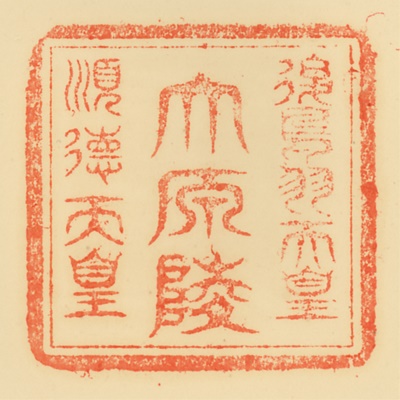 後鳥羽天皇
大原陵
順德天皇